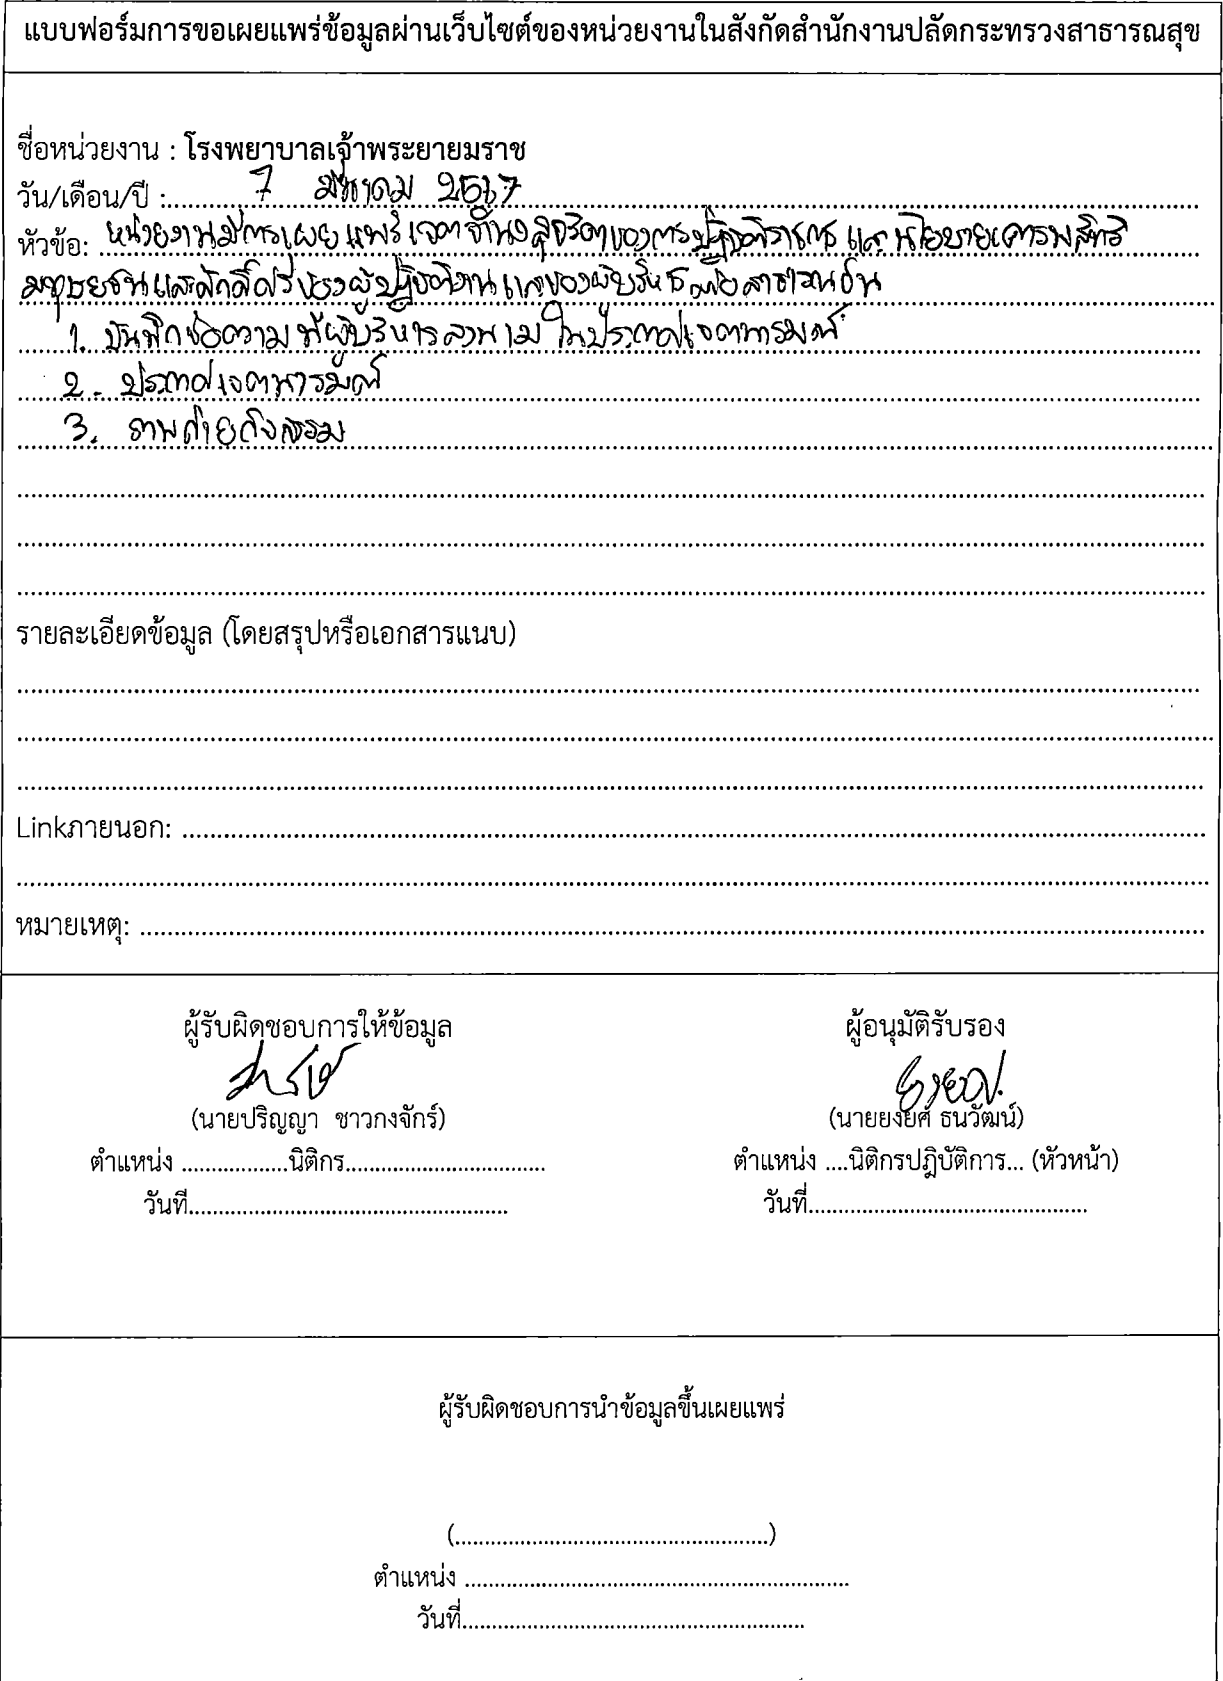 แบบฟอร์มการขอเผยแพร่ข้อมูลผ่านเว็บไซต์ของหน่วยงานในสังกัดสำนักงานปลัดกระทรวงสาธารณสุข
ชื่อหน่วยงาน : โรงพยาบาลเจ้าพระยายมราช
วัน/เดือน/ปี : 7 มีนาคม 2567
หัวข้อ: หน่วยงานมีการเผยแพร่เจตจำนงสุจริตของการปฏิบัติราชการ และนโยบายเคารพสิทธิ
มนุษยชนและศักดิ์ศรีของผู้ปฏิบัติงาน และของผู้บริหารต่อสาธารณชน
1. บันทึกข้อความที่ผู้บริหารลงนามในประกาศเจตนารมณ์
2. ประกาศเจตนารมณ์
3. ภาพถ่ายกิจกรรม
รายละเอียดข้อมูล (โดยสรุปหรือเอกสารแนบ)
Linkภายนอก:
หมายเหตุ:
ผู้รับผิดชอบการให้ข้อมูล
(นายปริญญา ชาวกงจักร์)
ตำแหน่ง ..................นิติกร..................................
วันที่......................................................
ผู้อนุมัติรับรอง
(นายยงยศ ธนวัฒน์)
ตำแหน่ง ....นิติกรปฏิบัติการ... (หัวหน้า)
วันที่...............................................
ผู้รับผิดชอบการนำข้อมูลขึ้นเผยแพร่
(.....................................................)
ตำแหน่ง .................................................................
วันที่..........................................................